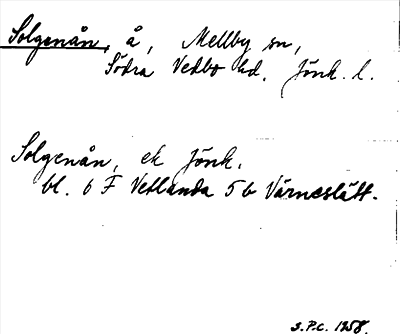 Solgenån, å, Mellby sn,
Södra Vedbo hd. Jönk. l.
Solgenån, ek Jönk.
bl. 6 F Vetlanda 5 b Värneslätt.
S.P.C. 1958.